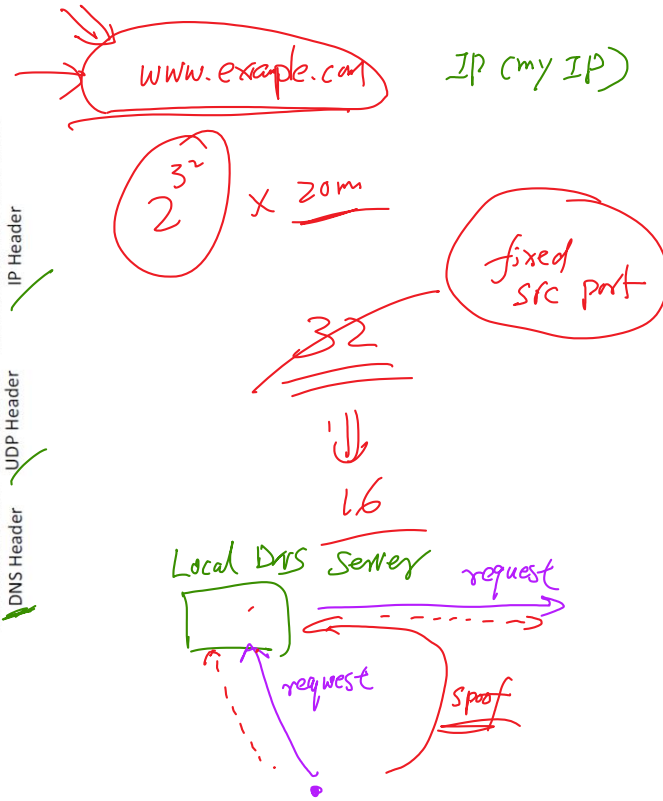 www.example.com
IP (my IP)
2^32 x 20m
fixed
src port
32
16
Local DNS Server
request
request
spoof
IP Header
UDP Header
DNS Header